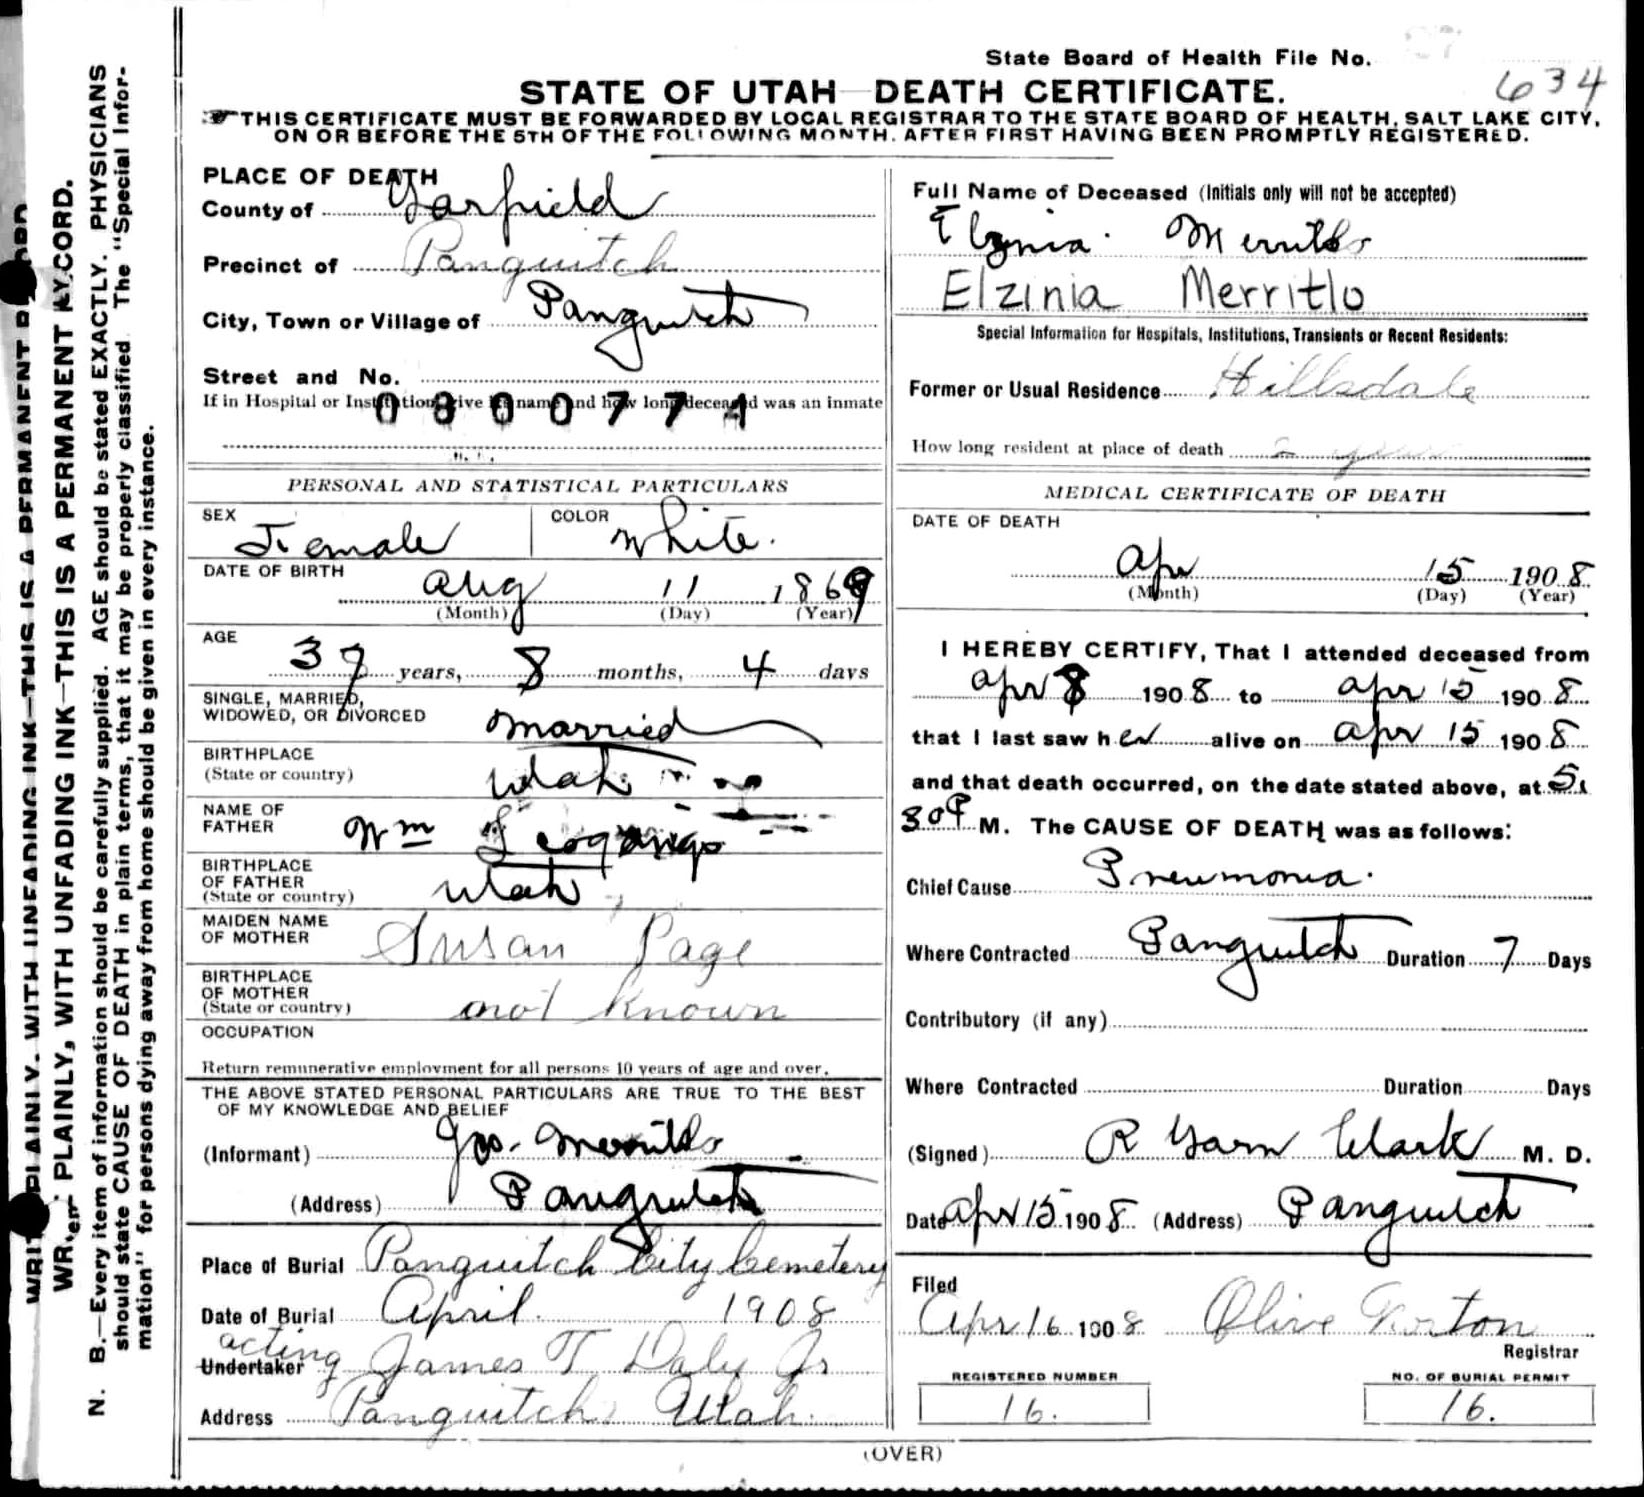 State Board of Health File No.
634
STATE OF UTAH—DEATH CERTIFICATE.
THIS CERTIFICATE MUST BE FORWARDED BY LOCAL REGISTRAR TO THE STATE BOARD OF HEALTH, SALT LAKE CITY,
ON OR BEFORE THE 5TH OF THE FOLLOWING MONTH, AFTER FIRST HAVING BEEN PROMPTLY REGISTERED.
WRITE PLAINLY, WITH UNFADING INK—THIS IS A PERMANENT RECORD
PLAINLY, WITH UNFADING INK—THIS IS A PERMANENT RECORD.
N. B.—Every item of information should be carefully supplied. AGE should be stated EXACTLY. PHYSICIANS
should state CAUSE OF DEATH in plain terms, that it may be properly classified. The "Special Infor-
mation" for persons dying away from home should be given in every instance.
PLACE OF DEATH
County of Garfield
Precinct of Panguitch
City, Town or Village of Panguitch
Street and No.
If in Hospital or Institution, give its name and how long deceased was an inmate
0800771
PERSONAL AND STATISTICAL PARTICULARS
SEX Female COLOR White.
DATE OF BIRTH
Aug 11 1869
(Month) (Day) (Year)
AGE
37 years, 8 months, 4 days
SINGLE, MARRIED,
WIDOWED, OR DIVORCED Married
BIRTHPLACE
(State or country) Utah
NAME OF
FATHER Wm
BIRTHPLACE
OF FATHER
(State or country) Utah
MAIDEN NAME
OF MOTHER Susan Page
BIRTHPLACE
OF MOTHER
(State or country) not known
OCCUPATION
Return remunerative employment for all persons 10 years of age and over.
THE ABOVE STATED PERSONAL PARTICULARS ARE TRUE TO THE BEST
OF MY KNOWLEDGE AND BELIEF
(Informant) Jos. Merritlo
(Address) Panguitch
Place of Burial Panguitch City Cemetery
Date of Burial April. 1908
acting
Undertaker James T Daly Jr
Address Panguitch, Utah.
Full Name of Deceased (Initials only will not be accepted)
Elzinia Merritlo
Elzinia Merritlo
Special Information for Hospitals, Institutions, Transients or Recent Residents:
Former or Usual Residence Hillsdale
How long resident at place of death 2 years
MEDICAL CERTIFICATE OF DEATH
DATE OF DEATH
Apr 15 1908
(Month) (Day) (Year)
I HEREBY CERTIFY, That I attended deceased from
Apr 8 1908 to Apr 15 1908
that I last saw her alive on Apr 15 1908
and that death occurred, on the date stated above, at 5:
30 P M. The CAUSE OF DEATH was as follows:
Chief Cause Pneumonia.
Where Contracted Panguitch Duration 7 Days
Contributory (if any)
Where Contracted Duration Days
(Signed) R Garn Clark M. D.
Date Apr 15 1908 (Address) Panguitch
Filed
Apr 16 1908 Olive Norton
Registrar
REGISTERED NUMBER
16.
NO. OF BURIAL PERMIT
16.
(OVER)